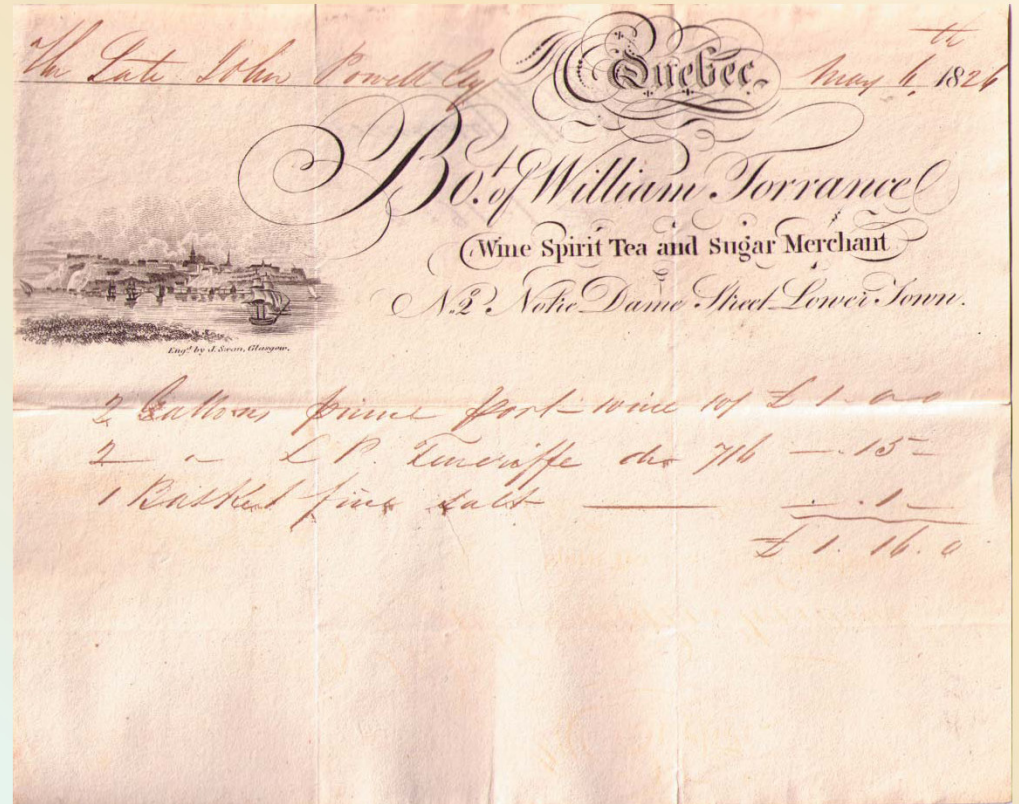 The Late John Powell Esq Quebec, May 6th, 1826
Bo.t of William Torrance
Wine Spirit Tea and Sugar Merchant
No. 2 Notre Dame Street Lower Town.
Engd. by J. Swan, Glasgow.
2 Gallons prime port wine 10/ £ 1 - 0 - 0
2 " L P. Teneriffe do 7/6 — 15 -
1 Basket fine salt — . 1 -
£ 1. 16. 0